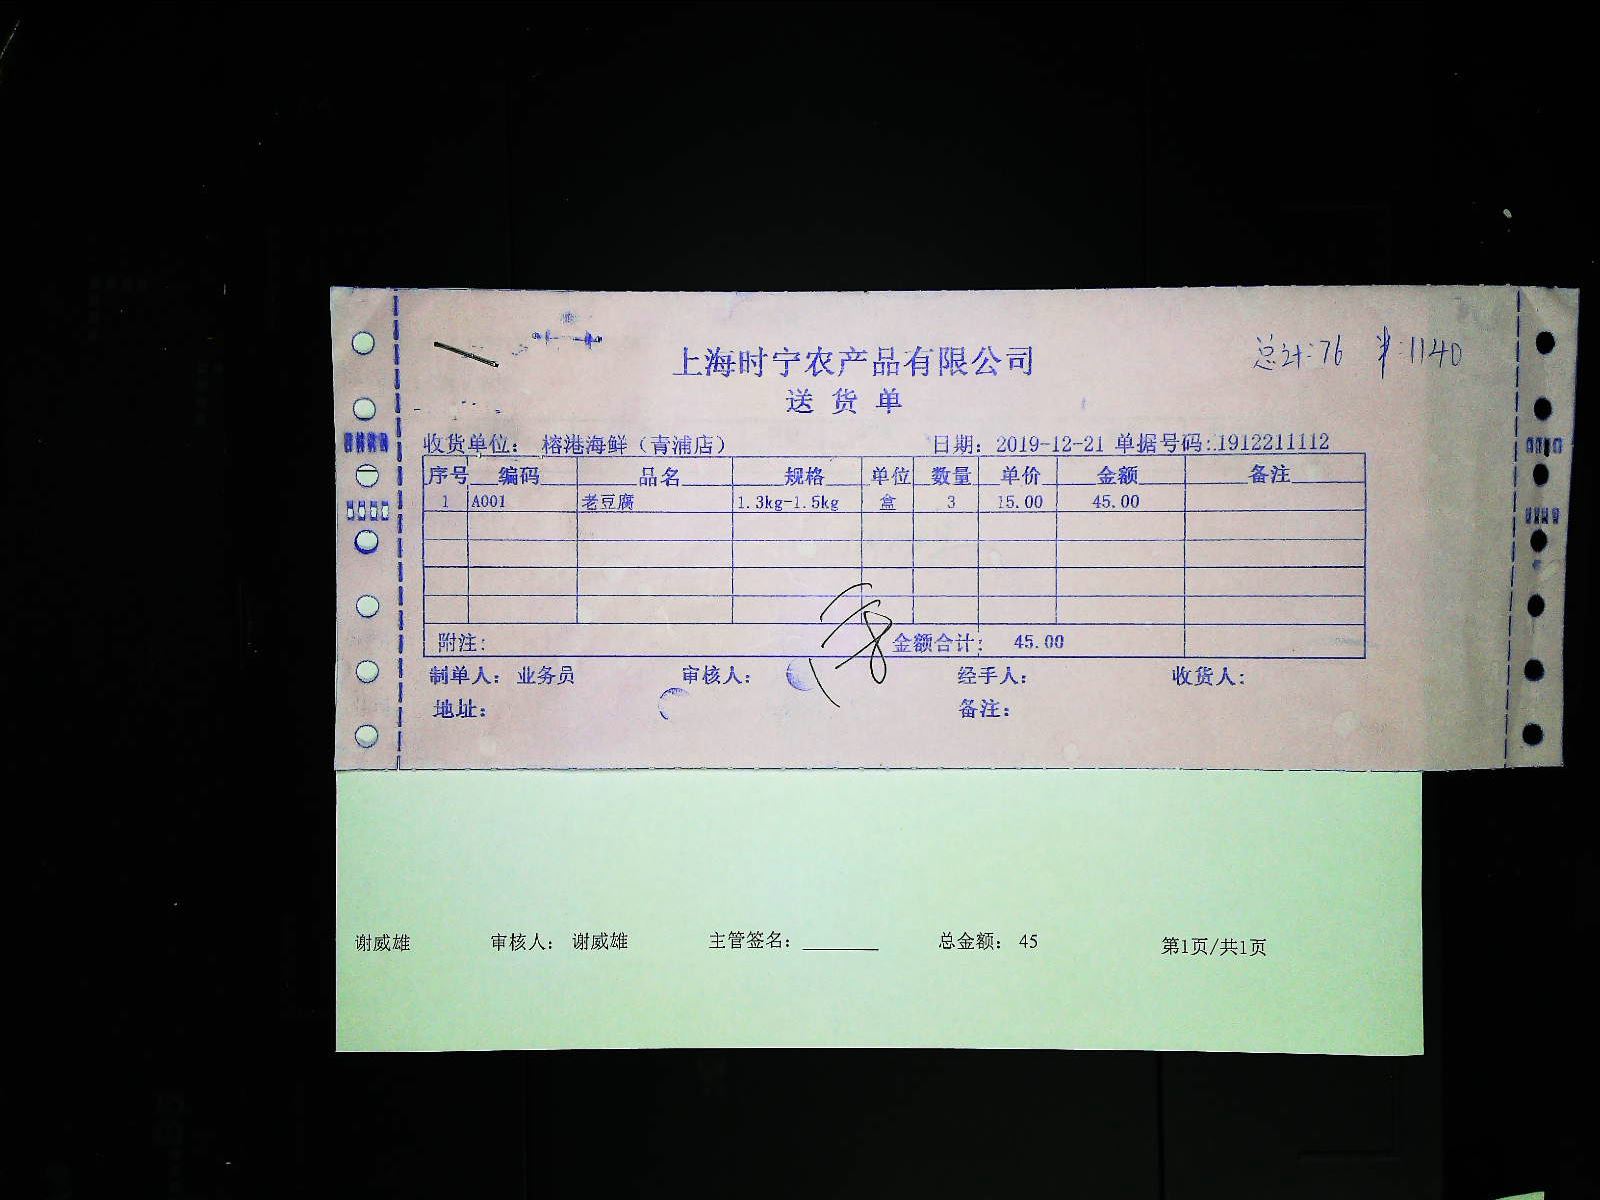 总计:76 ¥:1140
上海时宁农产品有限公司
送货单
收货单位： 榕港海鲜（青浦店） 日期： 2019-12-21 单据号码:.1912211112
序号 编码 品名 规格 单位 数量 单价 金额 备注
1 A001 老豆腐 1.3kg-1.5kg 盒 3 15.00 45.00
附注: 金额合计: 45.00
制单人： 业务员 审核人： 经手人： 收货人:
地址： 备注：
谢威雄 审核人： 谢威雄 主管签名：_______ 总金额： 45 第1页/共1页